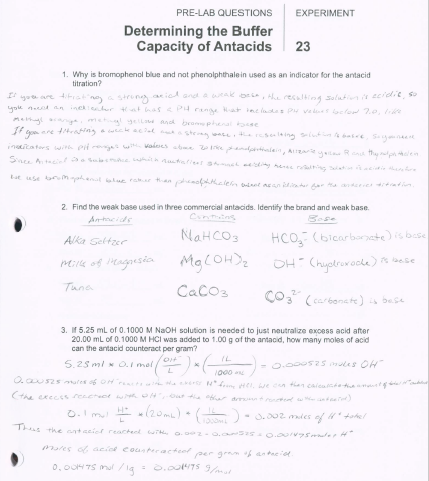 PRE-LAB QUESTIONS
EXPERIMENT
Determining the Buffer
Capacity of Antacids
23
1. Why is bromophenol blue and not phenolphthalein used as an indicator for the antacid
titration?
If you are titrating a strong acid and a weak base, the resulting solution is acidic, so
you need an indicator that has a pH range that includes pH values below 7.0, like
methyl orange, methyl yellow and bromophenol blue
If you are titrating a weak acid and a strong base, the resulting solution is basic, so you need
indicators with pH ranges with values above 7.0 like phenolphthalein, Alizarin yellow R and thymolphthalein
Since Antacid is a substance which neutralizes stomach acidity
we use bromophenol blue rather than phenolphthalein as an indicator for the antacid titration.
2. Find the weak base used in three commercial antacids. Identify the brand and weak base.
Antacids Contains Base
Alka Seltzer NaHCO3 HCO3- (bicarbonate) is base
Milk of Magnesia Mg(OH)2 OH- (hydroxide) is base
Tums CaCO3 CO3 2- (carbonate) is base
3. If 5.25 mL of 0.1000 M NaOH solution is needed to just neutralize excess acid after
20.00 mL of 0.1000 M HCl was added to 1.00 g of the antacid, how many moles of acid
can the antacid counteract per gram?
5.25 ml * 0.1 mol (OH-/L) * (1L/1000 mL) = 0.000525 moles OH-
0.000525 moles of OH- reacts with the excess H+ from HCl. We can then calculate the amount of
(the excess reacted with OH-, but the other amount reacted with antacid)
0.1 mol H+/L * (20mL) * (1L/1000mL) = 0.002 moles of H+ total
Thus the antacid reacted with 0.002 - 0.000525 = 0.001475 moles H+
moles of acid counteracted per gram of antacid.
0.001475 mol / 1g = 0.001475 g/mol